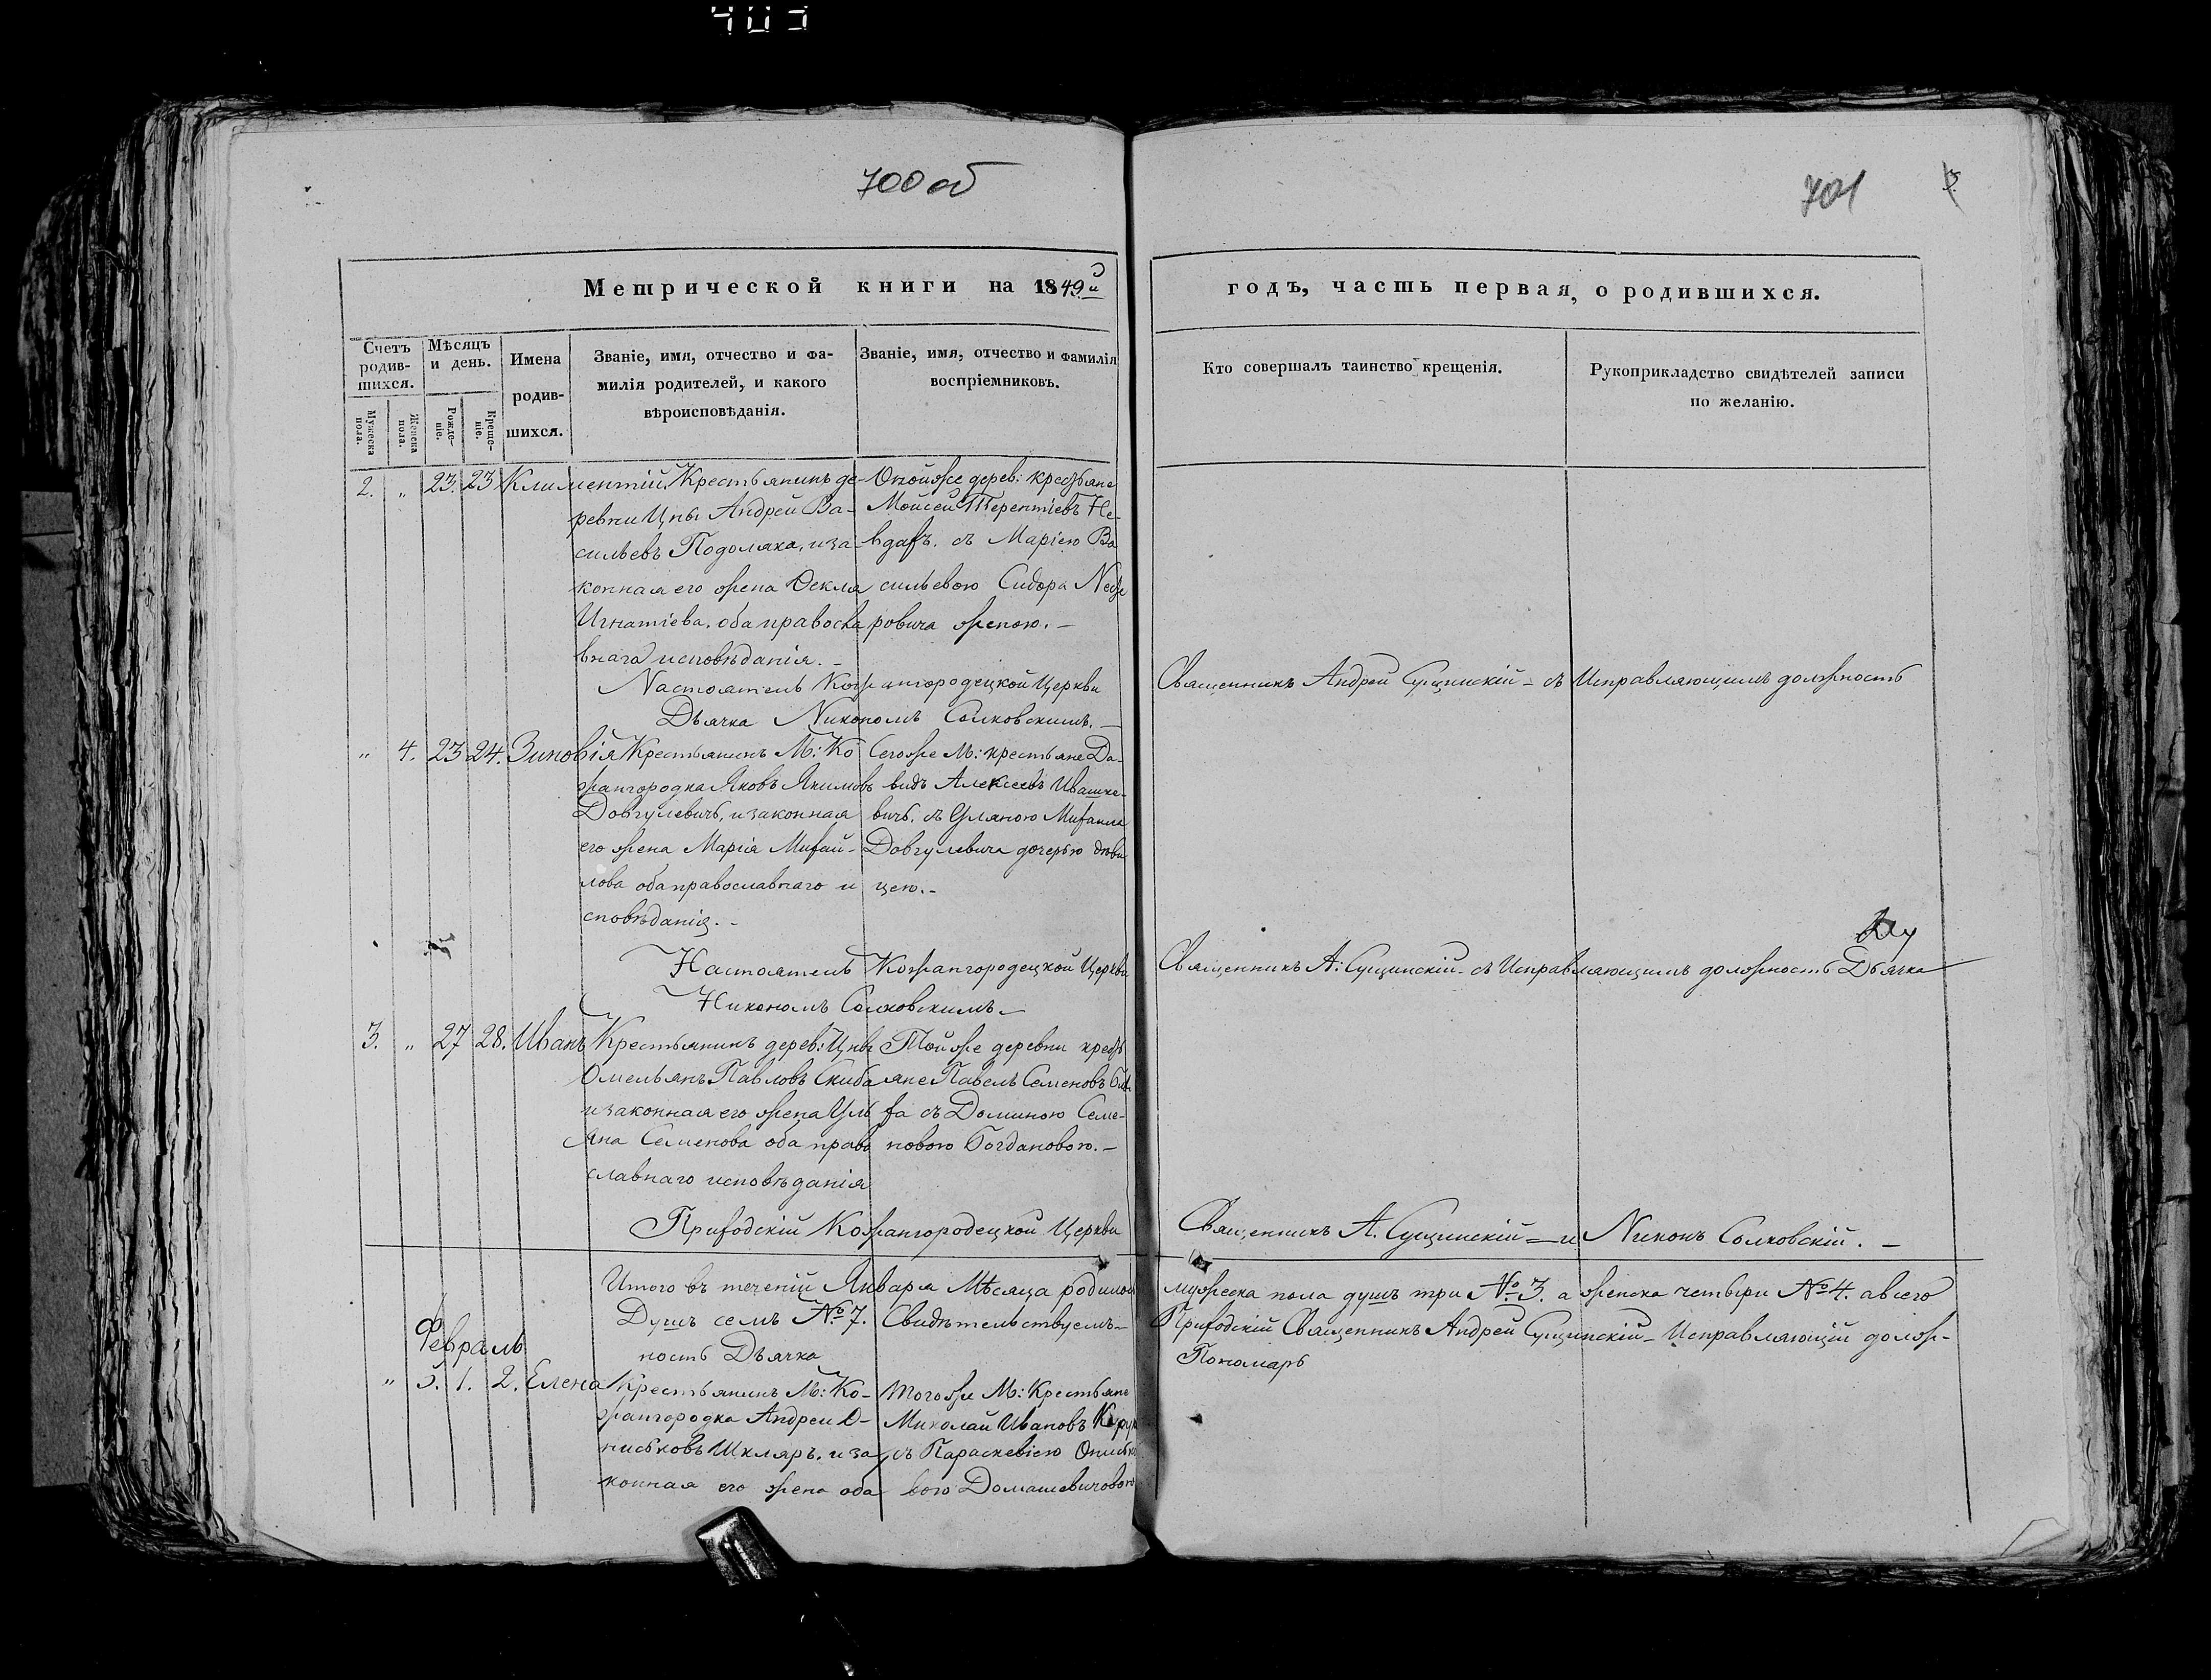 403
700 об
701
3
Метрической книги на 1849й
годъ, часть первая, о родившихся.
Счетъ родив-
шихся.
Мѣсяцъ
и день.
Имена
родив-
шихся.
Званіе, имя, отчество и фа-
милія родителей, и какого
вѣроисповѣданія.
Званіе, имя, отчество и фамилія
воспріемниковъ.
Кто совершалъ таинство крещенія.
Рукоприкладство свидѣтелей записи
по желанію.
Мужеска
пола.
Женска
пола.
Рожде-
ніе.
Креще-
ніе.
2. „ 23. 23 Климентій
Крестьянинъ де-
ревни Цны Андрей Ва-
сильевъ Подоляка, и за-
конная его жена Ѳекла
Игнатіева. оба правосла
внаго исповѣданія. –
Онойже дерев: крестьяне
Мойсей Терентіевъ
съ Маріею Ва
сильевою Сидора
ровича женою. –
Настоятель Кожангородецкой Церкви
Священникъ Андрей Сущинскій – съ Исправляющимъ должность
Дьячка Никономъ Солковскимъ. –
„ 4. 23 24. Зиновія
Крестьянинъ М: Ко
жангородка Яковъ Якимовъ
Довгулевичъ, и законная
его жена Марія Михай-
лова оба православнаго и
сповѣданія. –
Тогоже М: крестьяне Да-
видъ Алексѣевъ Ивашке-
вичъ. съ Уляною Михаила
Довгулевича дочерью дѣви
цею. –
Настоятель Кожангородецкой Церкви
Священникъ А: Сущинскій – съ Исправляющимъ должность Дьячка
Никономъ Солковскимъ –
3. „ 27 28. Иванъ
Крестьянинъ дерев: Цны
Омельянъ Павловъ Скиба
и законная его жена Уль
яна Семенова оба право
славнаго исповѣданія
Той же деревни кресть
яне Павелъ Семеновъ
ха съ Доминою Семе-
новою Богдановою. –
Приходскій Кожангородецкой Церкви
Священникъ А. Сущинскій – и Никонъ Солковскій. –
Итого въ теченіи Января Мѣсяца родилось
мужеска пола душъ три №3. а женска четыри №4. а всего
Душъ семъ №7. Свидѣтельствуемъ –
Приходскій Священникъ Андрей Сущинскій – Исправляющій долж-
ность Дьячка
Пономарь
Февраль
„ 5. 1. 2. Елена
Крестьянинъ М: Ко-
жангородка Андрей О-
нисковъ Шкляръ. и за
конная его жена оба
Тогоже М: Крестьяне
Миколай Ивановъ
съ Параскевіею
вою Домашевичовою